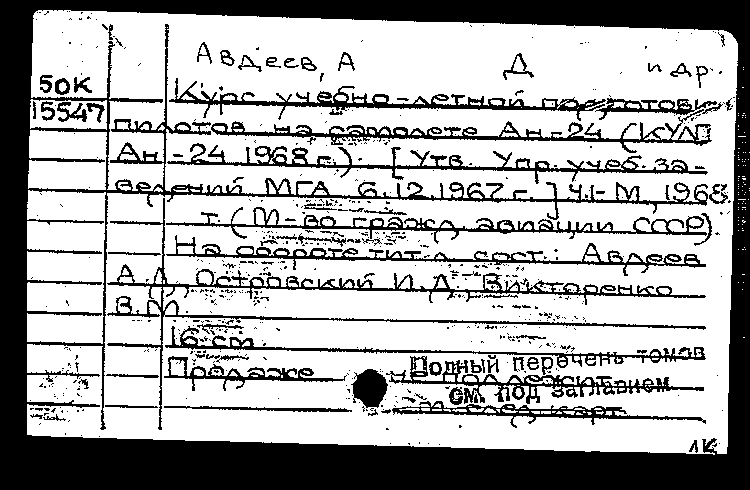 Авдеев, А Д и др.
50К Курс учебно-летной подготовки
15547 пилотов на самолете Ан-24 (КУЛП
Ан-24 1968 г.). [Утв. Упр. учеб. за-
ведений МГА 6.12.1967 г.] Ч.1- М., 1968
т. (М-во гражд. авиации СССР).
На обороте тит. л. сост.: Авдеев
А.Д., Островский И.Д., Викторенко
В.М.
16 см.
Полный перечень томов
Продаже не подлежит
см. под заглавием
т. след. карт.